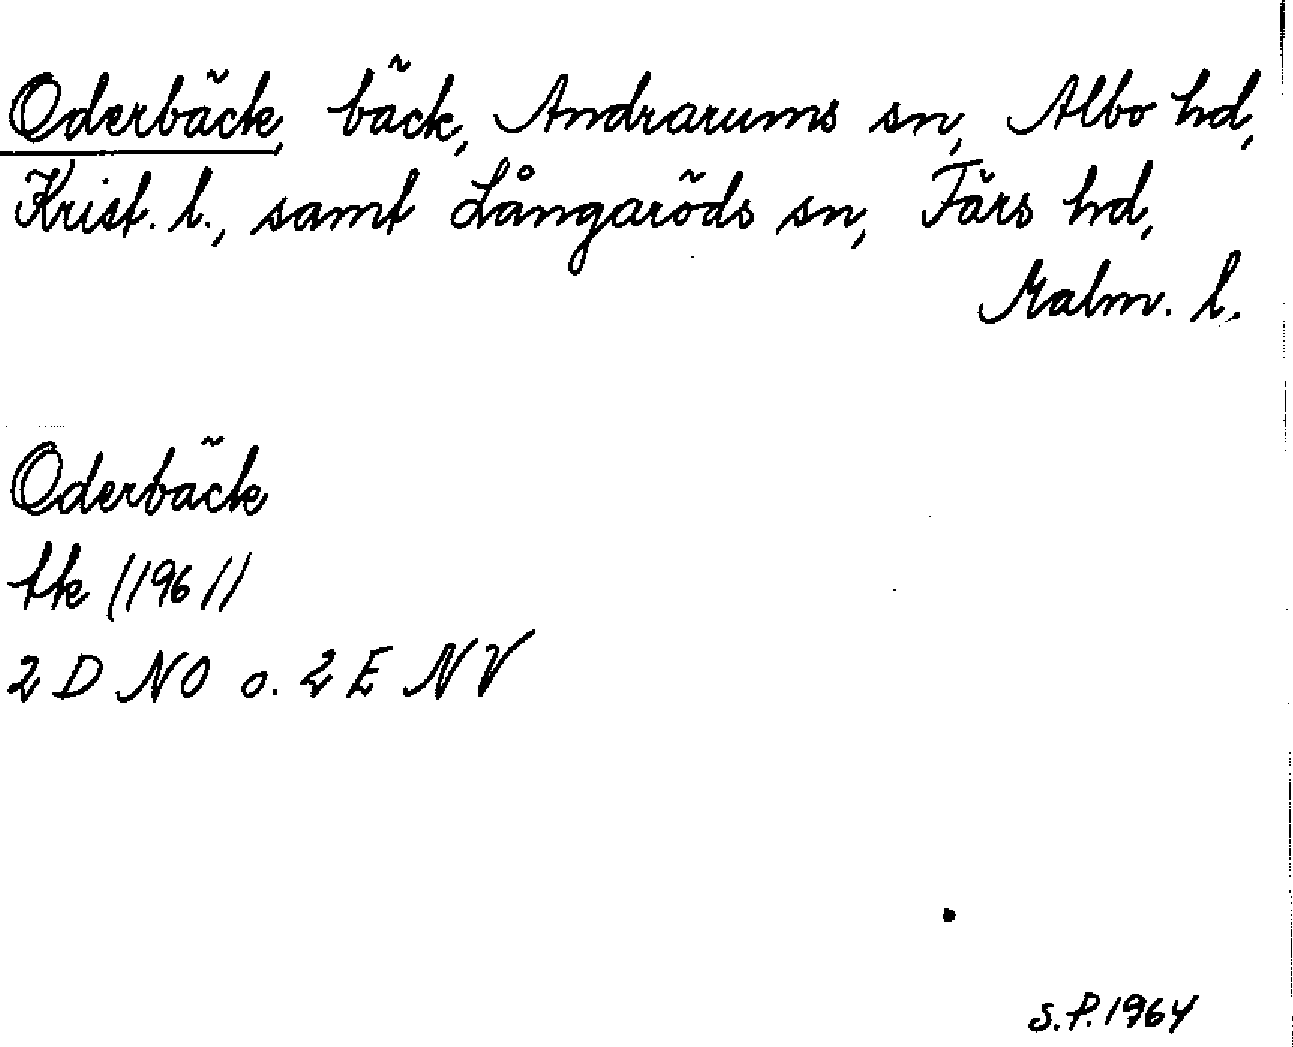 Oderbäck, bäck, Andrarums sn, Albo hd,
Krist. l., samt Långaröds sn, Färs hd,
Malm. l.
Oderbäck
tk (1961)
2 D NO o. 2 E NV
S.P. 1964